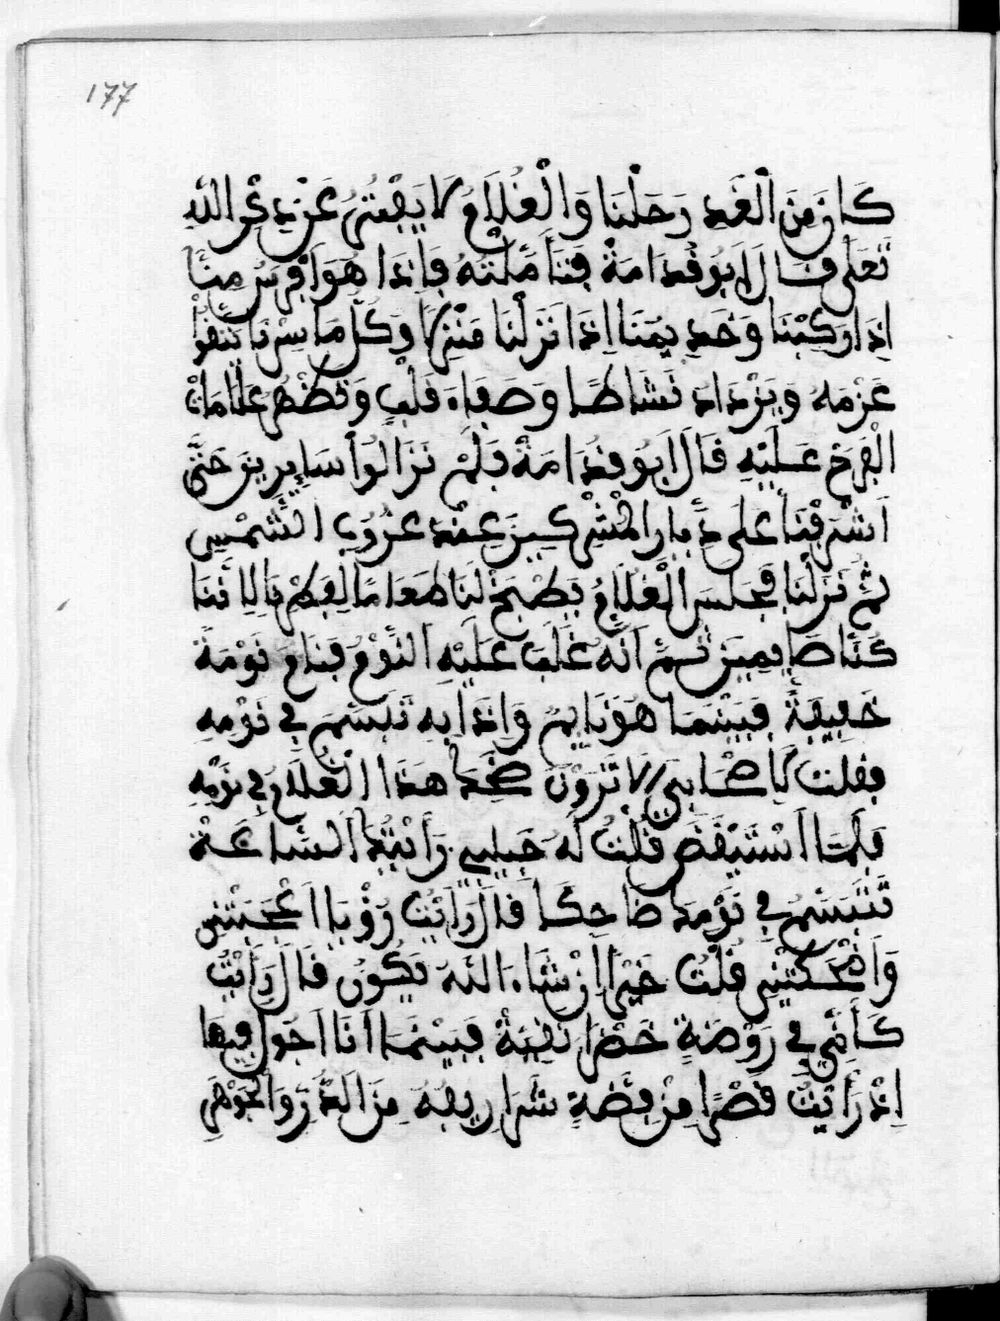 177
كَانَ مِنَ الْغَدِ رَحَلْنَا وَالْغُلَامُ لَا يَفْتُرُ عَنْ ذِكْرِ اللَّهِ
تَعَلَى قَالَ أَبُو قُدَامَةَ فَتَأَمَّلْتُهُ فَإِذَا هُوَ أَفْرَسُ مِنَّا
إِذَا رَكِبْنَا وَخَدِيمُنَا إِذَا نَزَلْنَا مَنْزِلًا وَكُلَّ مَا سِرْنَا يَتَقَوَّا
عَزْمُهُ وَيَزْدَادُ نَشَاطًا وَصَفَاءَ قَلْبٍ وَتَظْهَرُ عَلَامَاتُ
الْفَرَحِ عَلَيْهِ قَالَ أَبُو قُدَامَةَ فَلَمْ نَزَالُوا سَايِرِينَ حَتَّى
اَشْرَفْنَا عَلَى دِيَارِ الْمُشْرِكِينَ عِنْدَ غُرُوبِ الشَّمْسِ
ثُمَّ نَزَلْنَا فَجَلَسَ الْغُلَامُ يَطْبَخُ لَنَا طَعَامًا لِفِطْرِنَا لِأَنَّنَا
كُنَّا صَايِمِينَ ثُمَّ اَنَّهُ غَلَبَ عَلَيْهِ النَّوْمُ فَنَامَ نَوْمَةً
خَفِيفَةً فَبَيْنَمَا هُوَ نَايِمٌ وَإِذَا بِهِ تَبَسَّمَ فِي نَوْمِهِ
فَقُلْتُ لِأَصْحَابِي أَلَا تَرَوْنَ ضَحِكَ هَذَا الْغُلَامِ فِي نَوْمِهِ
فَلَمَّا اَسْتَيْقَضَ قُلْتُ لَهُ حَبِيبِي رَأَيْتُكَ السَّاعَةْ
تَتَبَسَّمُ فِي نَوْمِكَ ضَاحِكًا قَالَ رَأَيْتُ رُؤْيَا اَعْجَبَتْنِي
وَاَضْحَكَتْنِي قُلْتُ خَيْرًا إِنْ شَاءَ اللَّهُ تَكُونُ قَالَ رَأَيْتُ
كَأَنِّي فِي رَوْضَةٍ خَضْرَا فَبَيْنَمَا اَنَا اَجُولُ فِيهَا
اِذْ رَأَيْتُ قَصْرًا مِنْ فِضَّةٍ شَرَارِيفُهُ مِنَ الدُّرِّ وَالْجَوْهَرِ